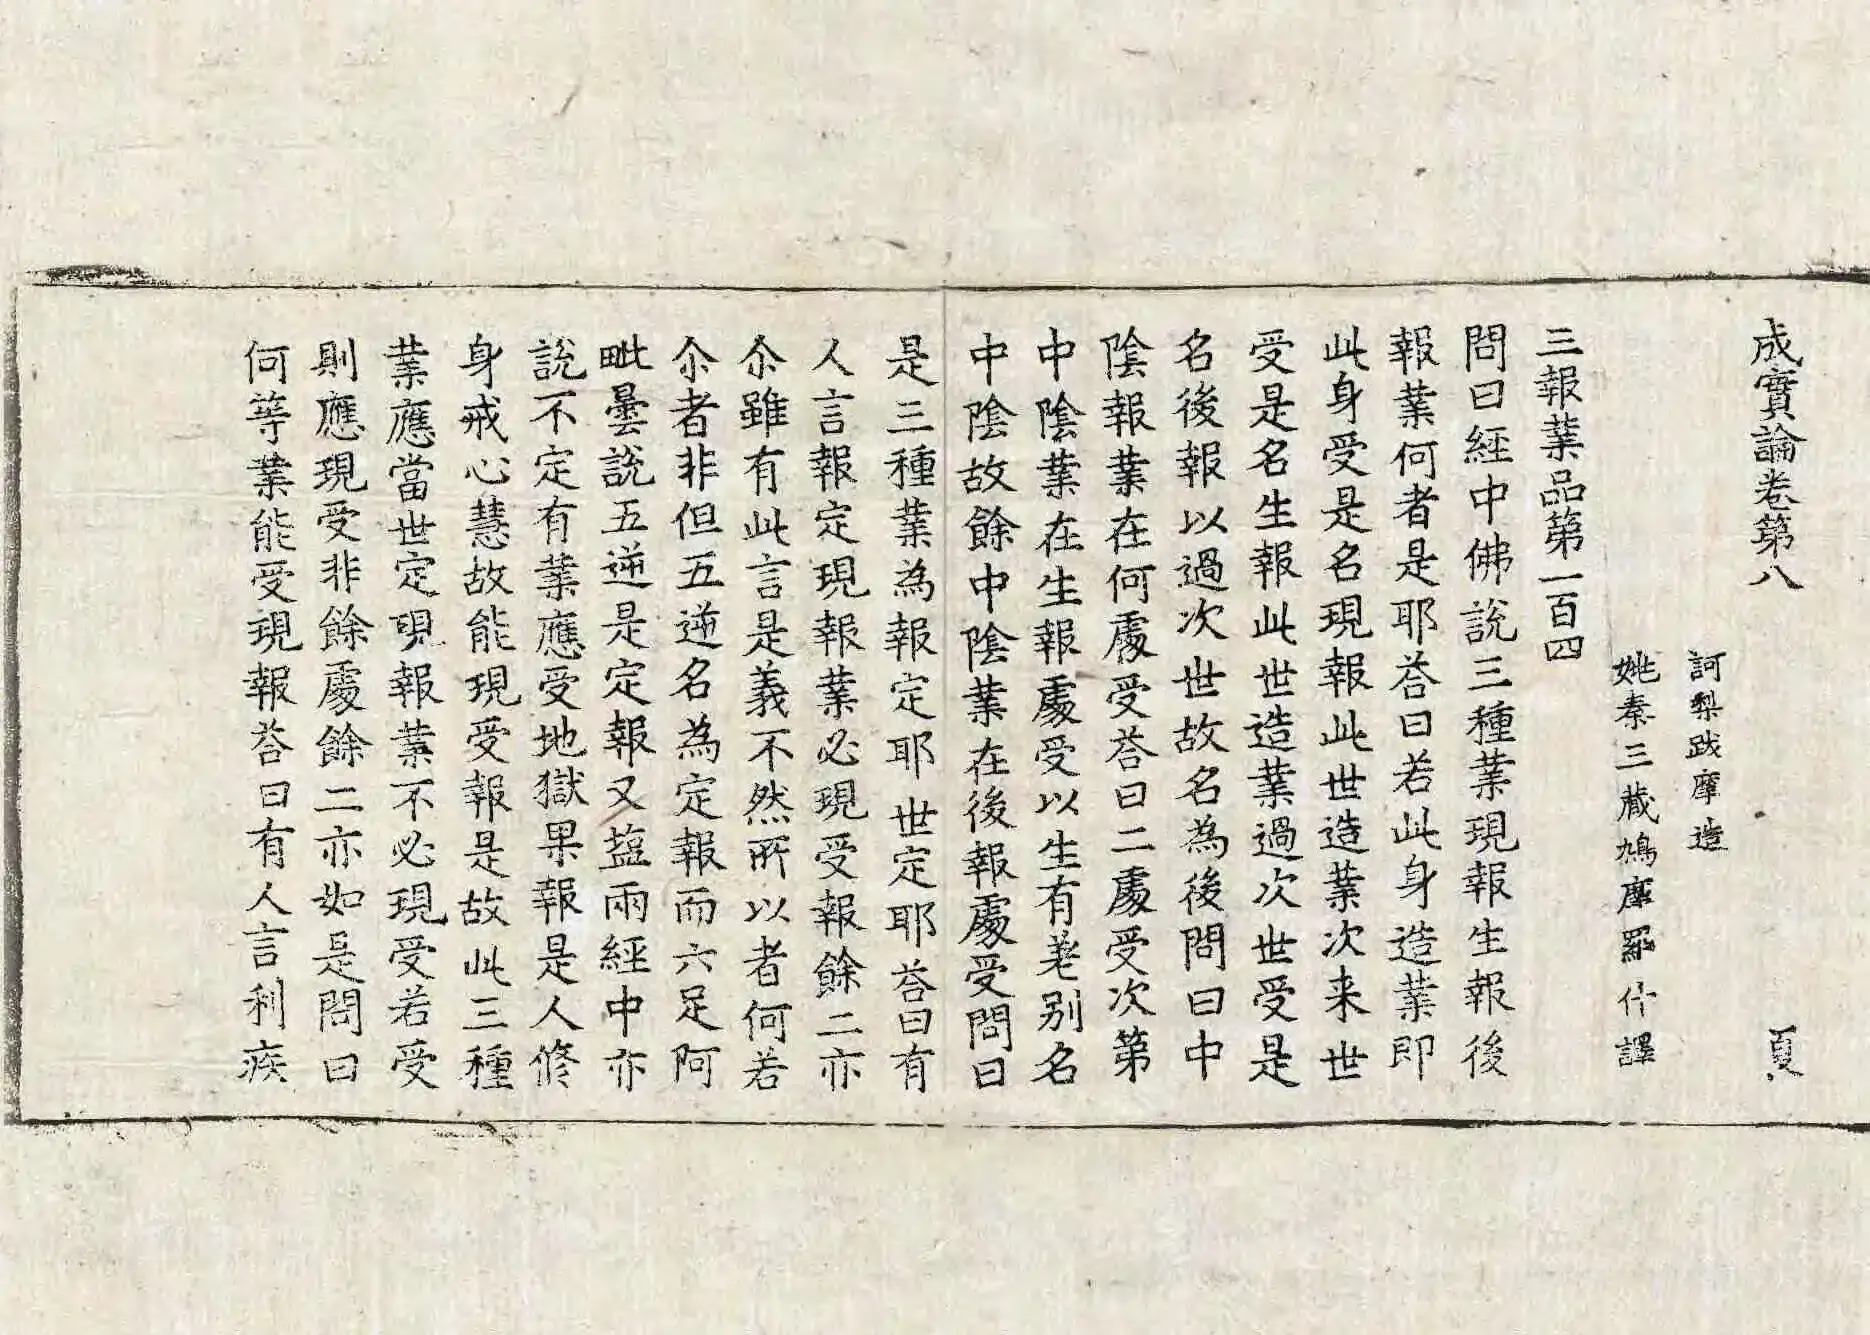 成實論卷第八 頁
訶梨跋摩造
姚秦三藏鳩摩羅什譯
三報業品第一百四
問曰經中佛說三種業現報生報後
報業何者是耶荅曰若此身造業即
此身受是名現報此世造業次来世
受是名生報此世造業過次世受是
名後報以過次世故名為後問曰中
陰報業在何處受荅曰二處受次第
中陰業在生報處受以生有差别名
中陰故餘中陰業在後報處受問曰
是三種業為報定耶世定耶荅曰有
人言報定現報業必現受報餘二亦
尒雖有此言是義不然所以者何若
尒者非但五逆名為定報而六足阿
毗曇說五逆是定報又塩兩經中亦
說不定有業應受地獄果報是人修
身戒心慧故能現受報是故此三種
業應當世定現報業不必現受若受
則應現受非餘處餘二亦如是問曰
何等業能受現報荅曰有人言利疾